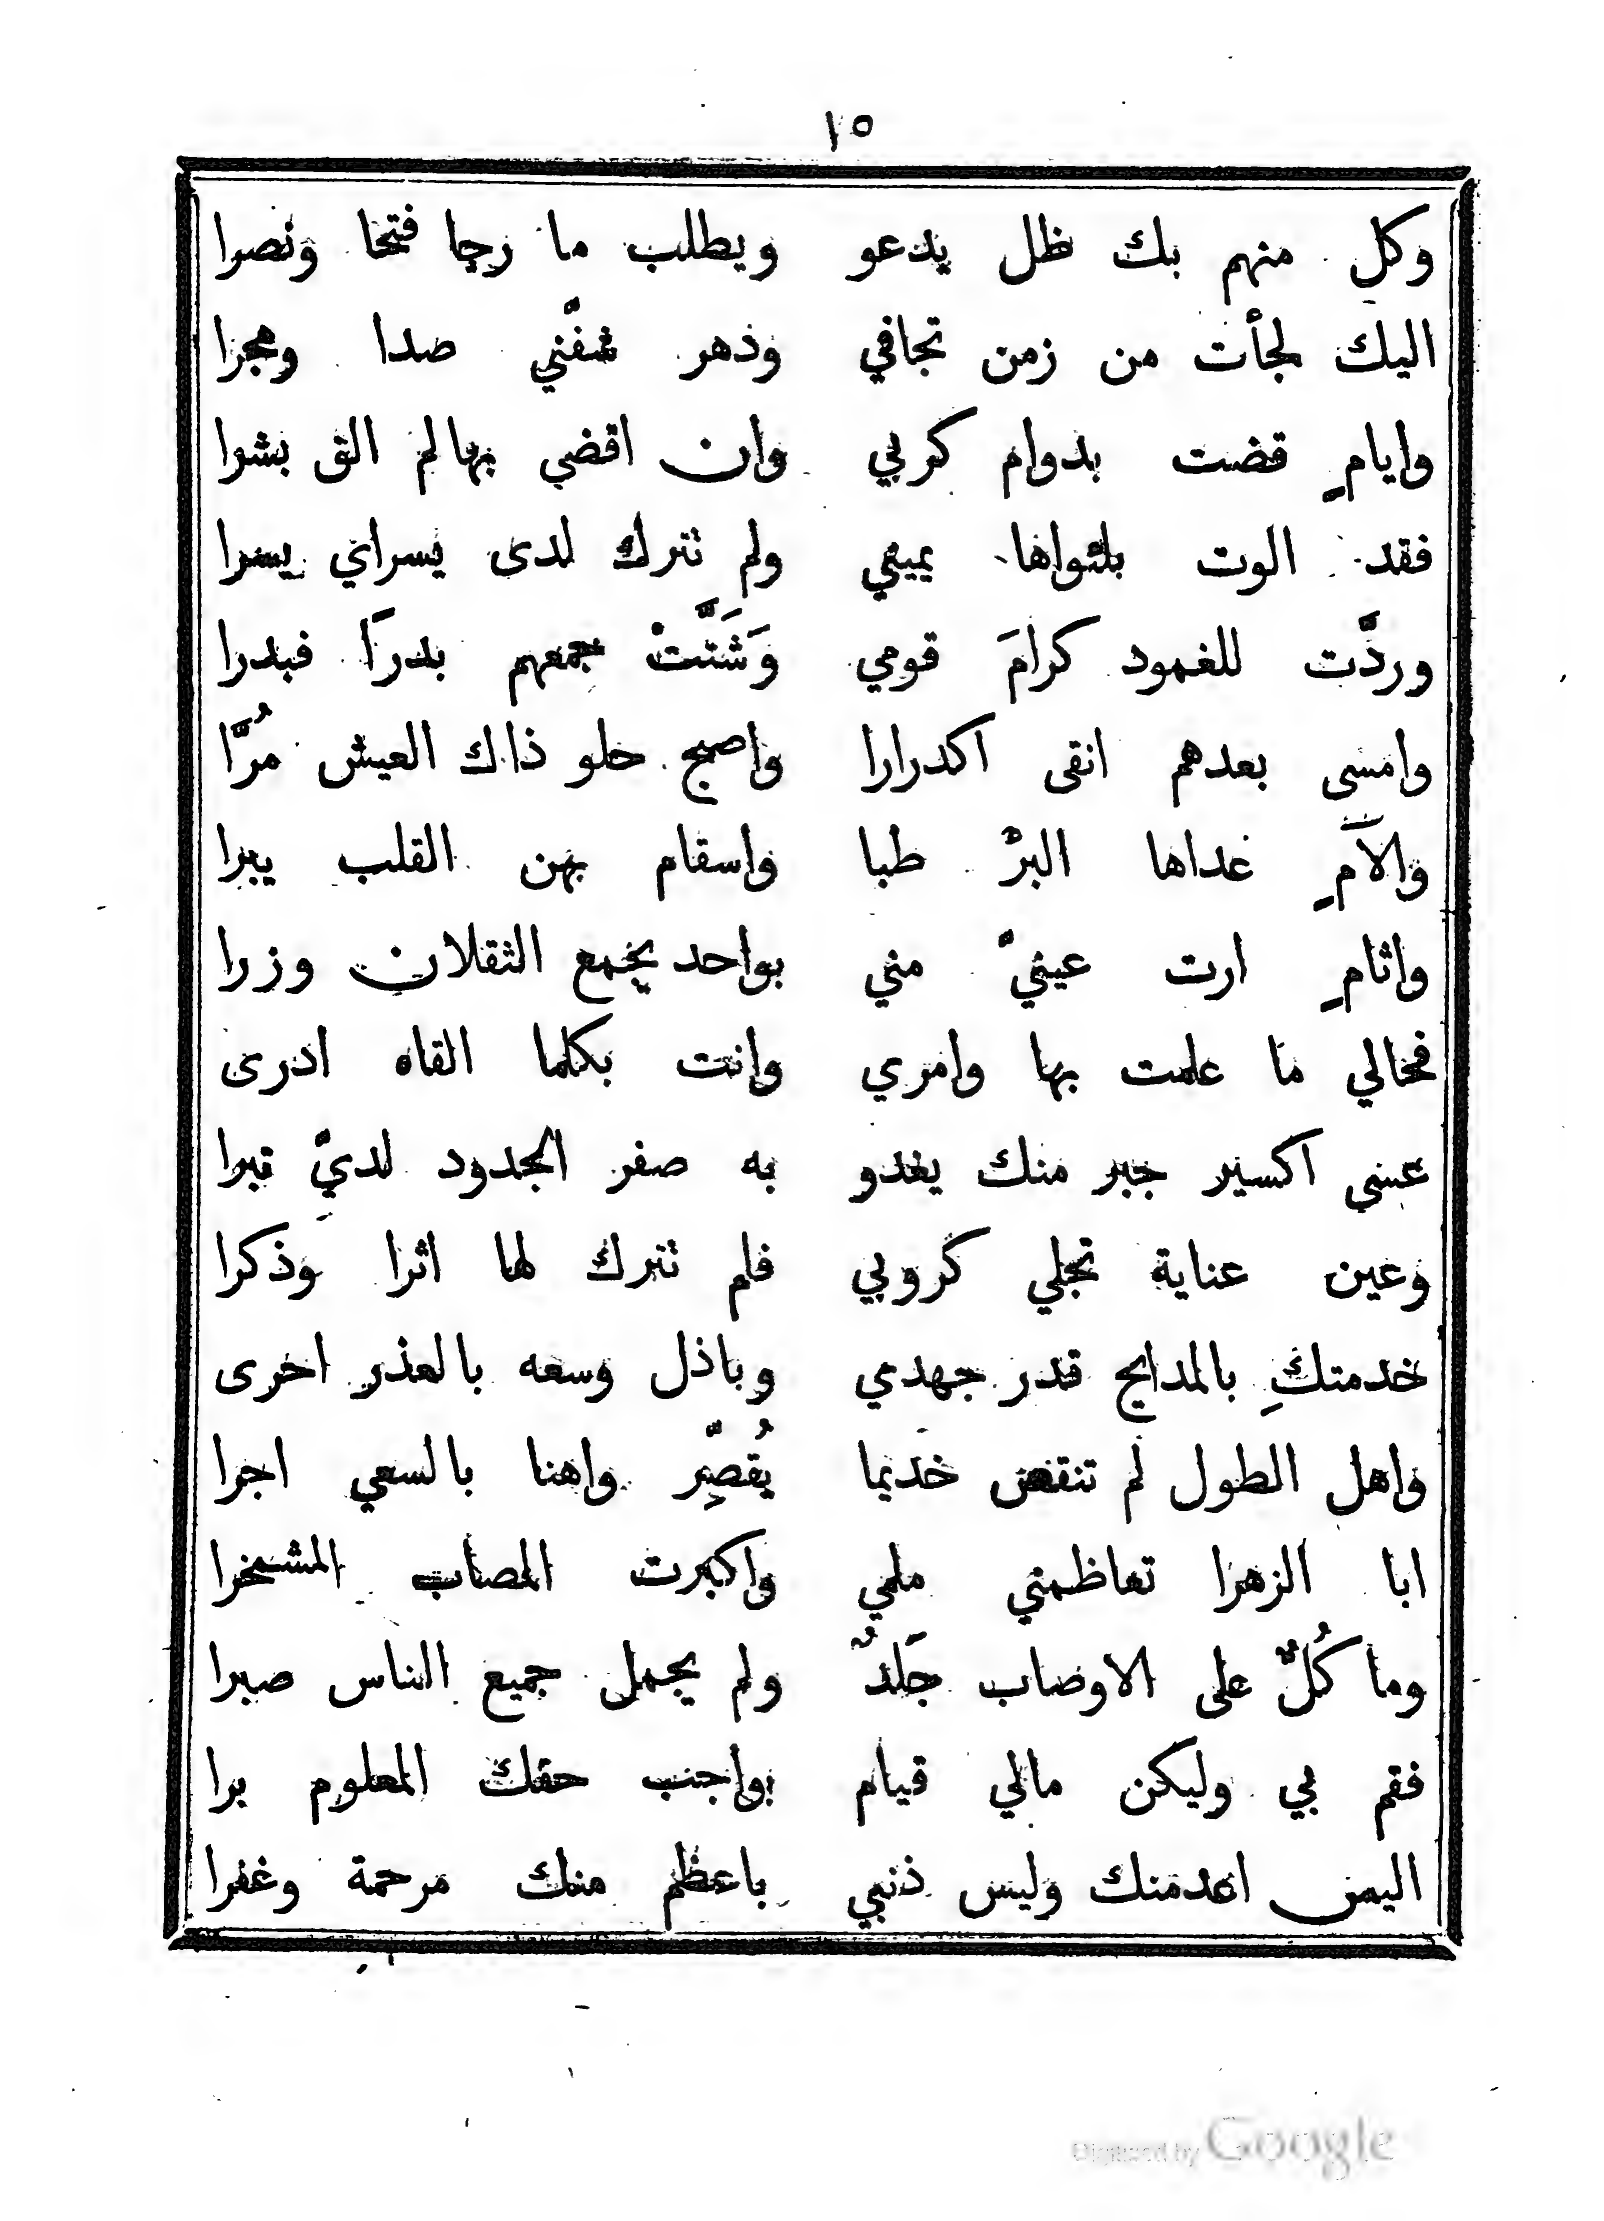 ١٥
وكل منهم بك ظل يدعو ويطلب ما رجا فتحا ونصرا
اليك لجأت من زمن تجافي ودهر شفّني صدا وهجرا
وايامٍ قضت بدوام كربي وان اقضي بها لم الق بشرا
فقد الوت بلئواها يميني ولم تترك لدى يسراي يسرا
وردَّت للغمود كرامَ قومي وَشَتَّتْ جمعهم بدرًا فبدرا
وامسى بعدهم انقى اكدرارا واصبح حلو ذاك العيش مُرَّا
وآلامٍ غداها البرْ طبا واسقام بهن القلب يبرا
واثامٍ ارت عينيَّ مني بواحد يجمع الثقلان وزرا
فحالي ما علمت بها وامري وانت بكلما القاه ادرى
عسى اكسير جبر منك يغدو به صفر الجدود لديَّ تبرا
وعين عناية تجلي كروبي فلم تترك لها اثرا وذكرا
خدمتكِ بالمدايح قدر جهدي وباذل وسعه بالعذر احرى
واهل الطول لم تنقض خديما يُقصِّر واهنا بالسعي اجرا
ابا الزهرا تعاظمني ملمي واكبرت المصاب المشمخرا
وما كُلٌ على الاوصاب جَلَدٌ ولم يجمل جميع الناس صبرا
فقم بي وليكن مالي قيام بواجب حقك المعلوم برا
اليمن اعدمنك وليس ذنبي باعظم منك مرحمة وغفرا
Digitized by Google